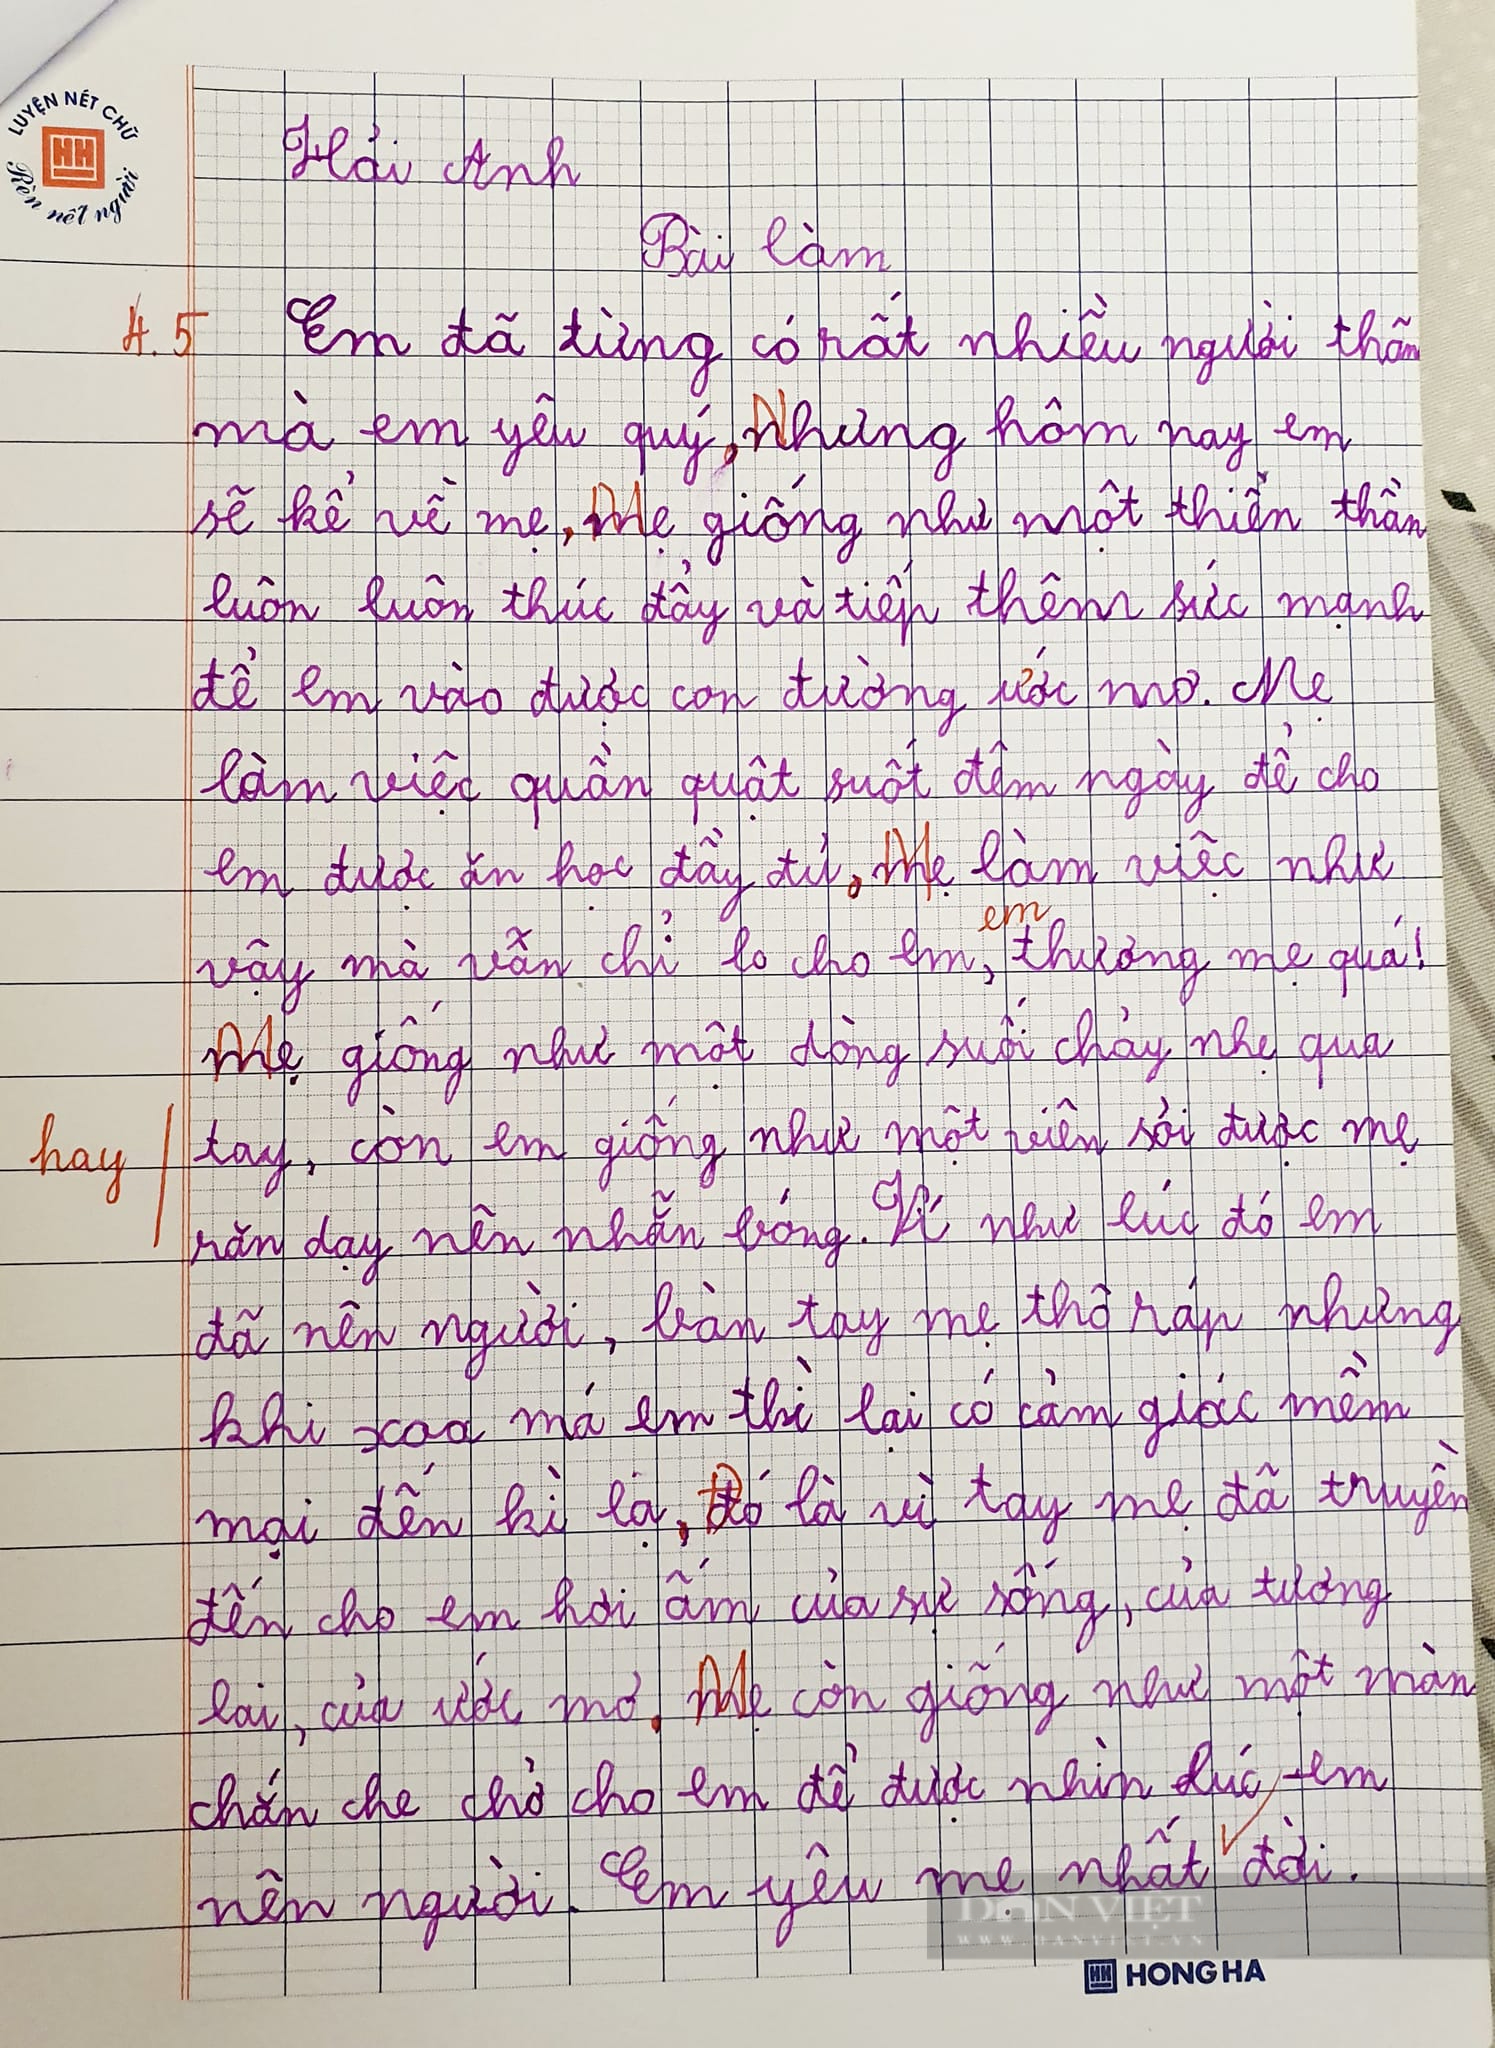 LUYỆN NÉT CHỮ
HH
Rèn nết người
Hải Anh
Bài làm
4.5 Em đã từng có rất nhiều người thân
mà em yêu quý, Nhưng hôm nay em
sẽ kể về mẹ, Mẹ giống như một thiên thần
luôn luôn thúc đẩy và tiếp thêm sức mạnh
để em vào được con đường ước mơ. Mẹ
làm việc quần quật suốt đêm ngày để cho
em được ăn học đầy đủ, Mẹ làm việc như
em
vậy mà vẫn chỉ lo cho em, thương mẹ quá!
Mẹ giống như một dòng suối chảy nhẹ qua
hay tay, còn em giống như một viên sỏi được mẹ
răn dạy nên nhẵn bóng. Ví như lúc đó em
đã nên người, bàn tay mẹ thô ráp nhưng
khi xoa má em thì lại có cảm giác mềm
mại đến kì lạ, Đó là vì tay mẹ đã truyền
đến cho em hơi ấm của sự sống, của tương
lai, của ước mơ. Mẹ còn giống như một màn
chắn che chở cho em để được nhìn lúc em
nên người. Em yêu mẹ nhất đời.
DÂN VIỆT
WWW.DANVIET.VN
HH HONG HA